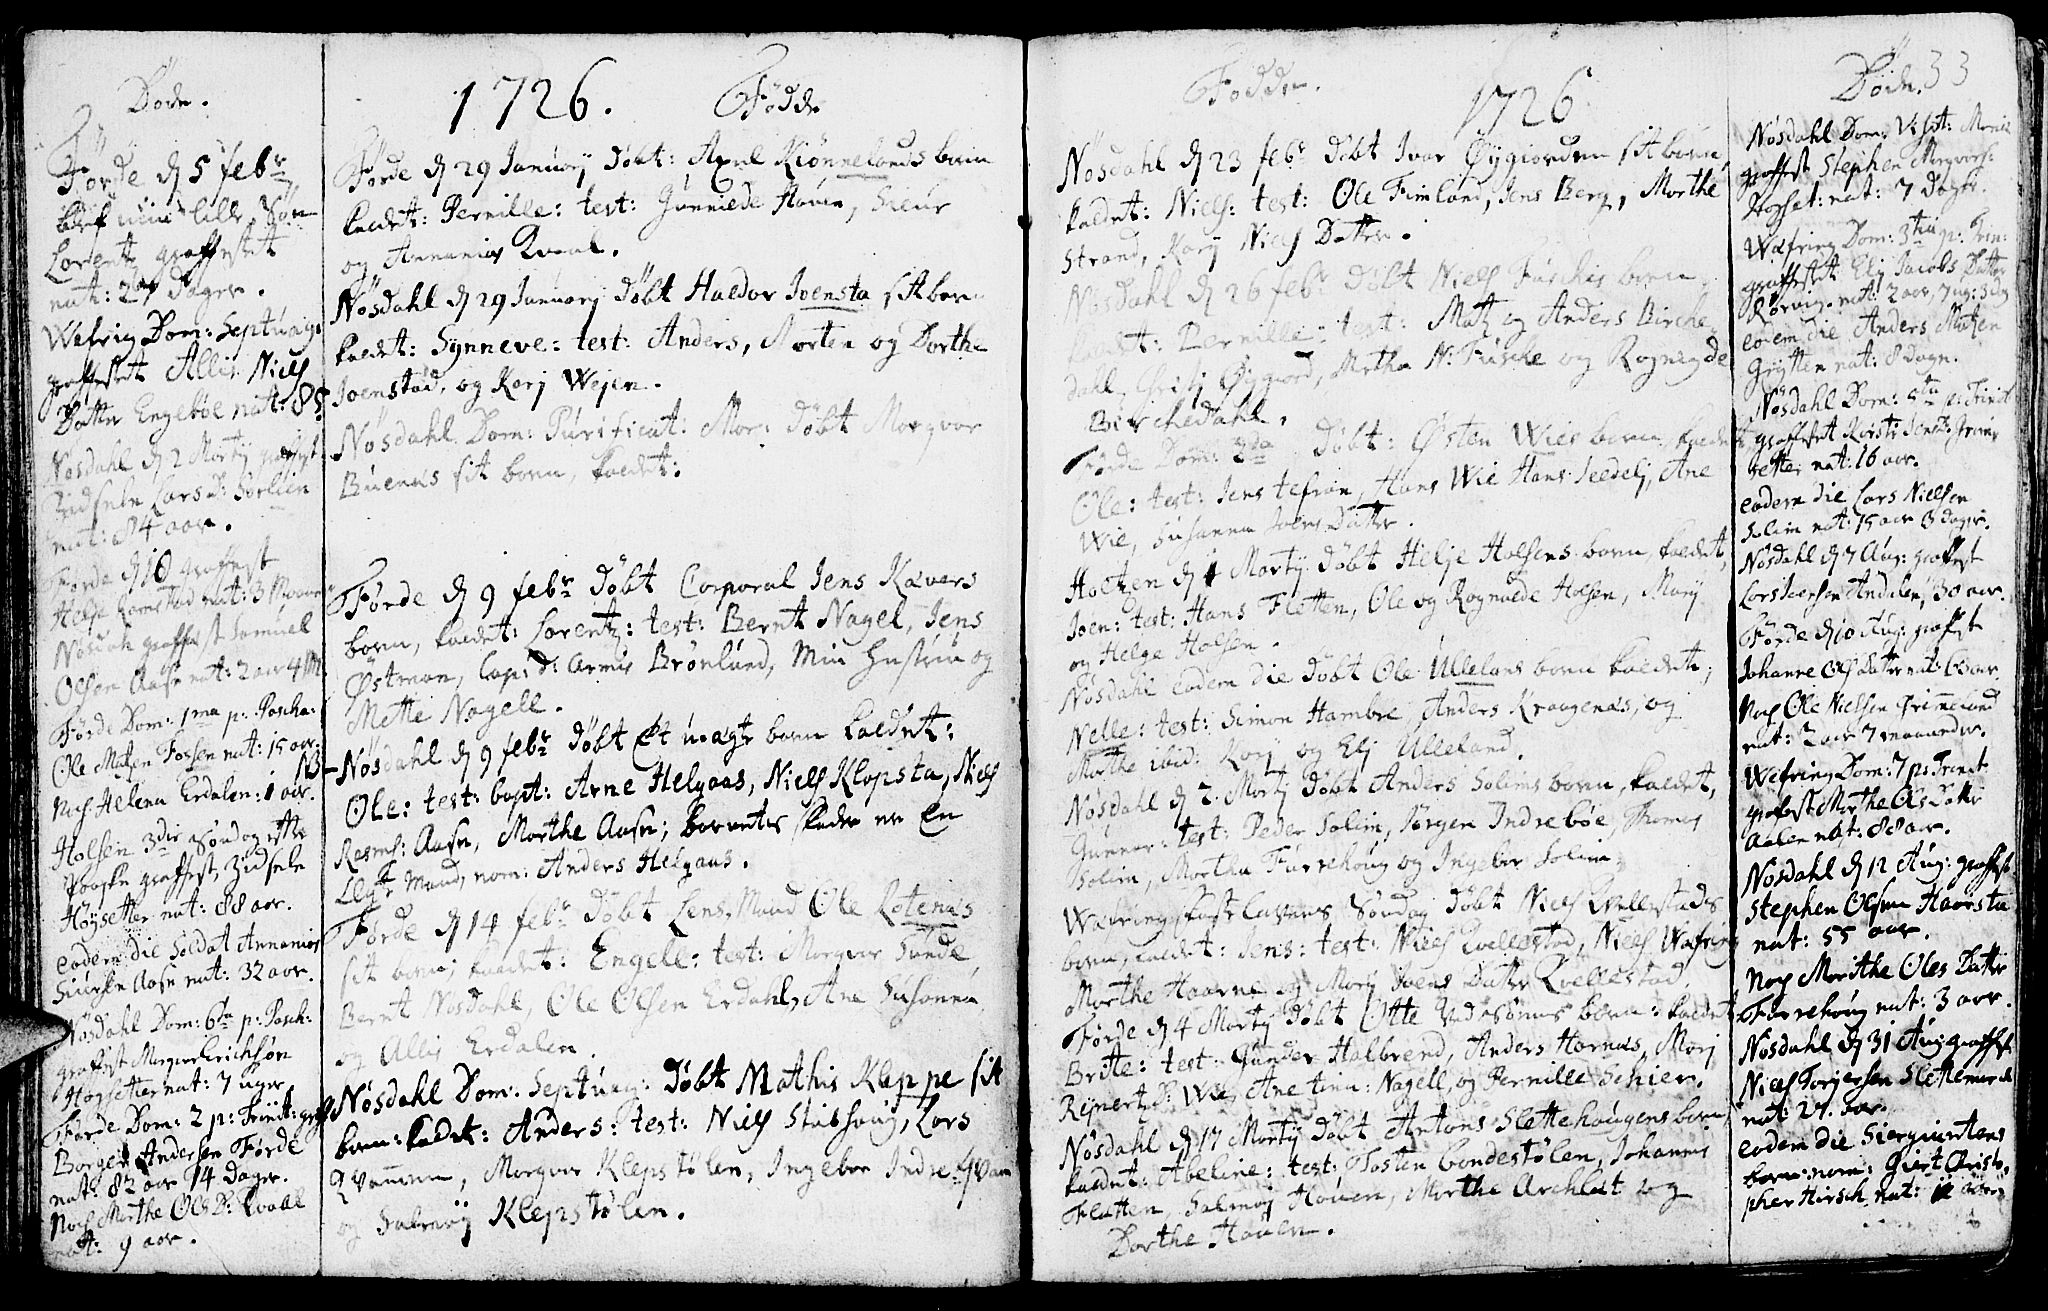 Døde.
Førde d 5 febr
blef min lille Søn
Lorentz graffestet
nat: 27 Dager.
Wefrig Dom: Septuag:
graffestet Allis Niels
Datter Engebøe nat: 85
Nøsdahl d 2 Marty graffest
Zidsele Lars D: Sørlien
nat: 84 aar.
Førde d 10 graffest
Helje Ramstad nat: 3
Nøsdah graffest Samuel
Olsen Aasn nat: 2 aar 4 M:
Førde Dom: 1ma p: Pascha:
Ole Matzen Fossen nat: 15 aar.
Nof Helena Erdalen: 1 aar.
Holsen 3die Søndag efter
Paaske graffest, Zidsele
Høysetter nat: 88 aar.
eodem die Soldat Annanias
Siursen Aasn nat: 32 aar.
Nøsdahl Dom: 6ta p: Pasch:
graffest Morgvor Erichsøn
Høgsetter nat: 7 uger
Førde Dom: 2 p: Trinit: graff
Børger Andersen Førde
nat: 82 aar 14 Dager.
Nof Marthe Ols D: Kvaal
nat: 9 aar.
1726. Fødde
Førde d 29 January Døbt: Axel Kiønnelands barn
kaldet: Pernille: test: Gunnilde Hauen, Siur
og Annanias Kvaal.
Nøsdahl d 29 January Døbt Haldor Joensta sit barn
kaldet: Synneve: test: Anders, Morten og Dorthe
Joenstad, og Karj Wejen.
Nøsdahl Dom: Purificat: Mar: Døbt Morgvor
Buenæs sit barn, kaldet:
Førde d 9 febr Døbt Corporal Jens Kavers
barn, kaldet: Lorentz: test: Bernt Nagel, Jens
Østman, Cap: d: armis Brønlund, Min Hustru og
Mette Nagell.
NB - Nøsdahl d 9 febr Døbt Et uægte barn kaldet:
Ole: test: bapt: Arne Helgaas, Niels Klopsta, Niels
Rasms: Aasn, Marthe Aasn; barnetes fader er En
Gift Mand, nom: Anders Helgaas.
Førde d 14 febr Døbt Lens-Mand Ole Lotenæs
sit barn; kaldet: Engell: test: Morgvor Sunde
Bernt Nøsdahl, Ole Olsen Erdahl, Ane Susanna
og Allis Erdalen.
Nøsdahl Dom: Septuag: Døbt Mathis Kleppe sit
barn: kaldet: Anders: test: Niels Stubhaug, Lars
Qvammen, Morgvor Klepstølen, Ingebor Indre-Qvam
og Salmøj Klepstølen.
Fødde. 1726
Nøsdahl d 23 febr Døbt Ivar Øygiorden sit barn,
kaldet: Niels: test: Ole Fimland, Jens Berg, Marthe
Strand, Karj Niels Datter.
Nøsdahl d 26 febr Døbt Niels Fuskis barn
kaldet: Pernille: test: Matz og Anders Birche-
dahl, Øygiord, Martha N: Fusche og Ragnilde
Birchedahl.
Førde Dom: 3da Døbt: Østen Wies barn kaldet
Ole: test: Jens Hans Wie Hans Ane
Wie, Susanna Joens Datter.
Holtzen d 1 Marty Døbt Helje Holsens barn, kaldet,
Joen: test: Hans Fletten, Ole og Ragnilde Holsen, Mary
og Helge Holsen.
Nøsdahl eodem die Døbt Ole Ullelans barn kaldet,
Nelle: test: Simon Hambre, Anders Kraagenæs, og
Marthe ibid: Karj og Elj Ulleland.
Nøsdahl d 2. Marty Døbt Anders Solims barn, kaldet,
Gunnar: test: Peder Solim, Jørgen Indrebøe, Thomas
Solim, Martha Furrehaug og Ingebor Solim;
Wæfring fastelavens Søndag Døbt Niels Qvellestads
barn, kaldet: Jens: test: Niels Qvellestad, Niels Wæfring
Marthe Haarne og Mary Joens Datter Qvellestad.
Førde d 4 Marty Døbt Otte barn: kaldet
Brite: test: Gunder Halbrend, Anders Hornæs, Marj
Rejnertz D: Wie, Anetina: Nagell, og Pernille Schier.
Nøsdahl d 17 Marty Døbt Antons Slettehaugens barn,
kaldet: Abeline: test: Tosten bondestølen, Johannes
Flatten, Salmøj Hauen, Marthe Archlat og
Dorthe Hauen.
Døde. 33
Nøsdahl Dom: Visit: Mariæ
graffest Stephen Morgvors:
Hogset: nat: 7 Dager.
Wæfring Dom: 3tia p: Trin:
graffestet Elj Jacobs Datter
Rørvig. nat: 2 aar, 7 ug: 3 dag
eodem die Anders Matzen
Grytten nat: 8 dager.
Nøsdahl Dom: 5ta p: Trinit
graffestet Kirsti Jensd:
setter nat: 16 aar.
eodem die Lars Nielsen
Solim nat: 15 aar 3 dager.
Nøsdahl d 7 Aug: graffest
Lars Iversen Andalen, 30 aar.
Førde d 10 Aug: graffest
Johanne Ols Datter nat: 60 aar.
Nof Ole Nielsen Frimeland
nat: 2 aar 7 maaneder.
Wefring Dom: 7 p: Trinit
graffest Marthe Ols Datter
Aalen nat: 88 aar.
Nøsdahl d 12 Aug: graffest
Stephen Olsen Haarsta
nat: 55 aar.
Nof Marithe Oles Datter
Farrehaug nat: 3 aar.
Nøsdahl d 31 Aug: graffest
Niels Torgersen Slettemark
nat: 27. aar.
eodem die Siergiantens
barn: nom: Giert Christo-
pher Hirsch nat: